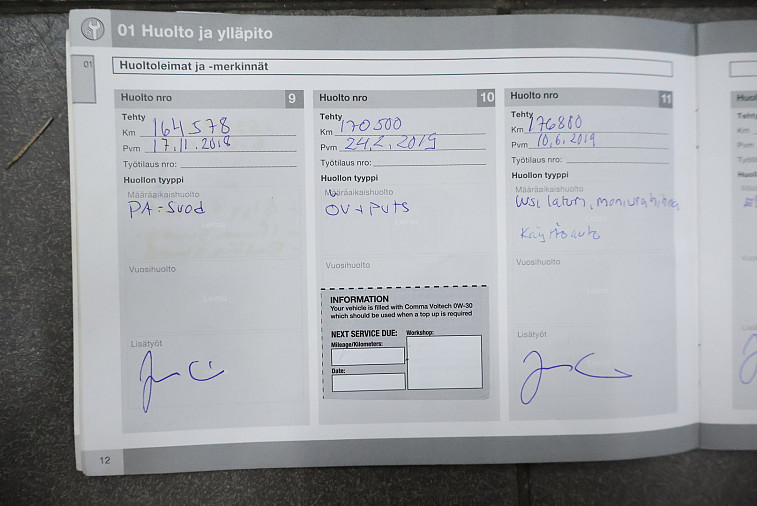 01 Huolto ja ylläpito
01
Huoltoleimat ja -merkinnät
Huolto nro 9
Tehty
Km 164578
Pvm 17.11.2018
Työtilaus nro:
Huollon tyyppi
Määräaikaishuolto
PA-Suod
Vuosihuolto
Lisätyöt
Huolto nro 10
Tehty
Km 170500
Pvm 24.2.2019
Työtilaus nro:
Huollon tyyppi
Määräaikaishuolto
ÖV + PVTS
Vuosihuolto
INFORMATION
Your vehicle is filled with Comma Voltech 0W-30
which should be used when a top up is required
NEXT SERVICE DUE:
Mileage/Kilometers:
Workshop:
Date:
Huolto nro 11
Tehty
Km 176880
Pvm 10.6.2019
Työtilaus nro:
Huollon tyyppi
Määräaikaishuolto
Vuosihuolto
Lisätyöt
12